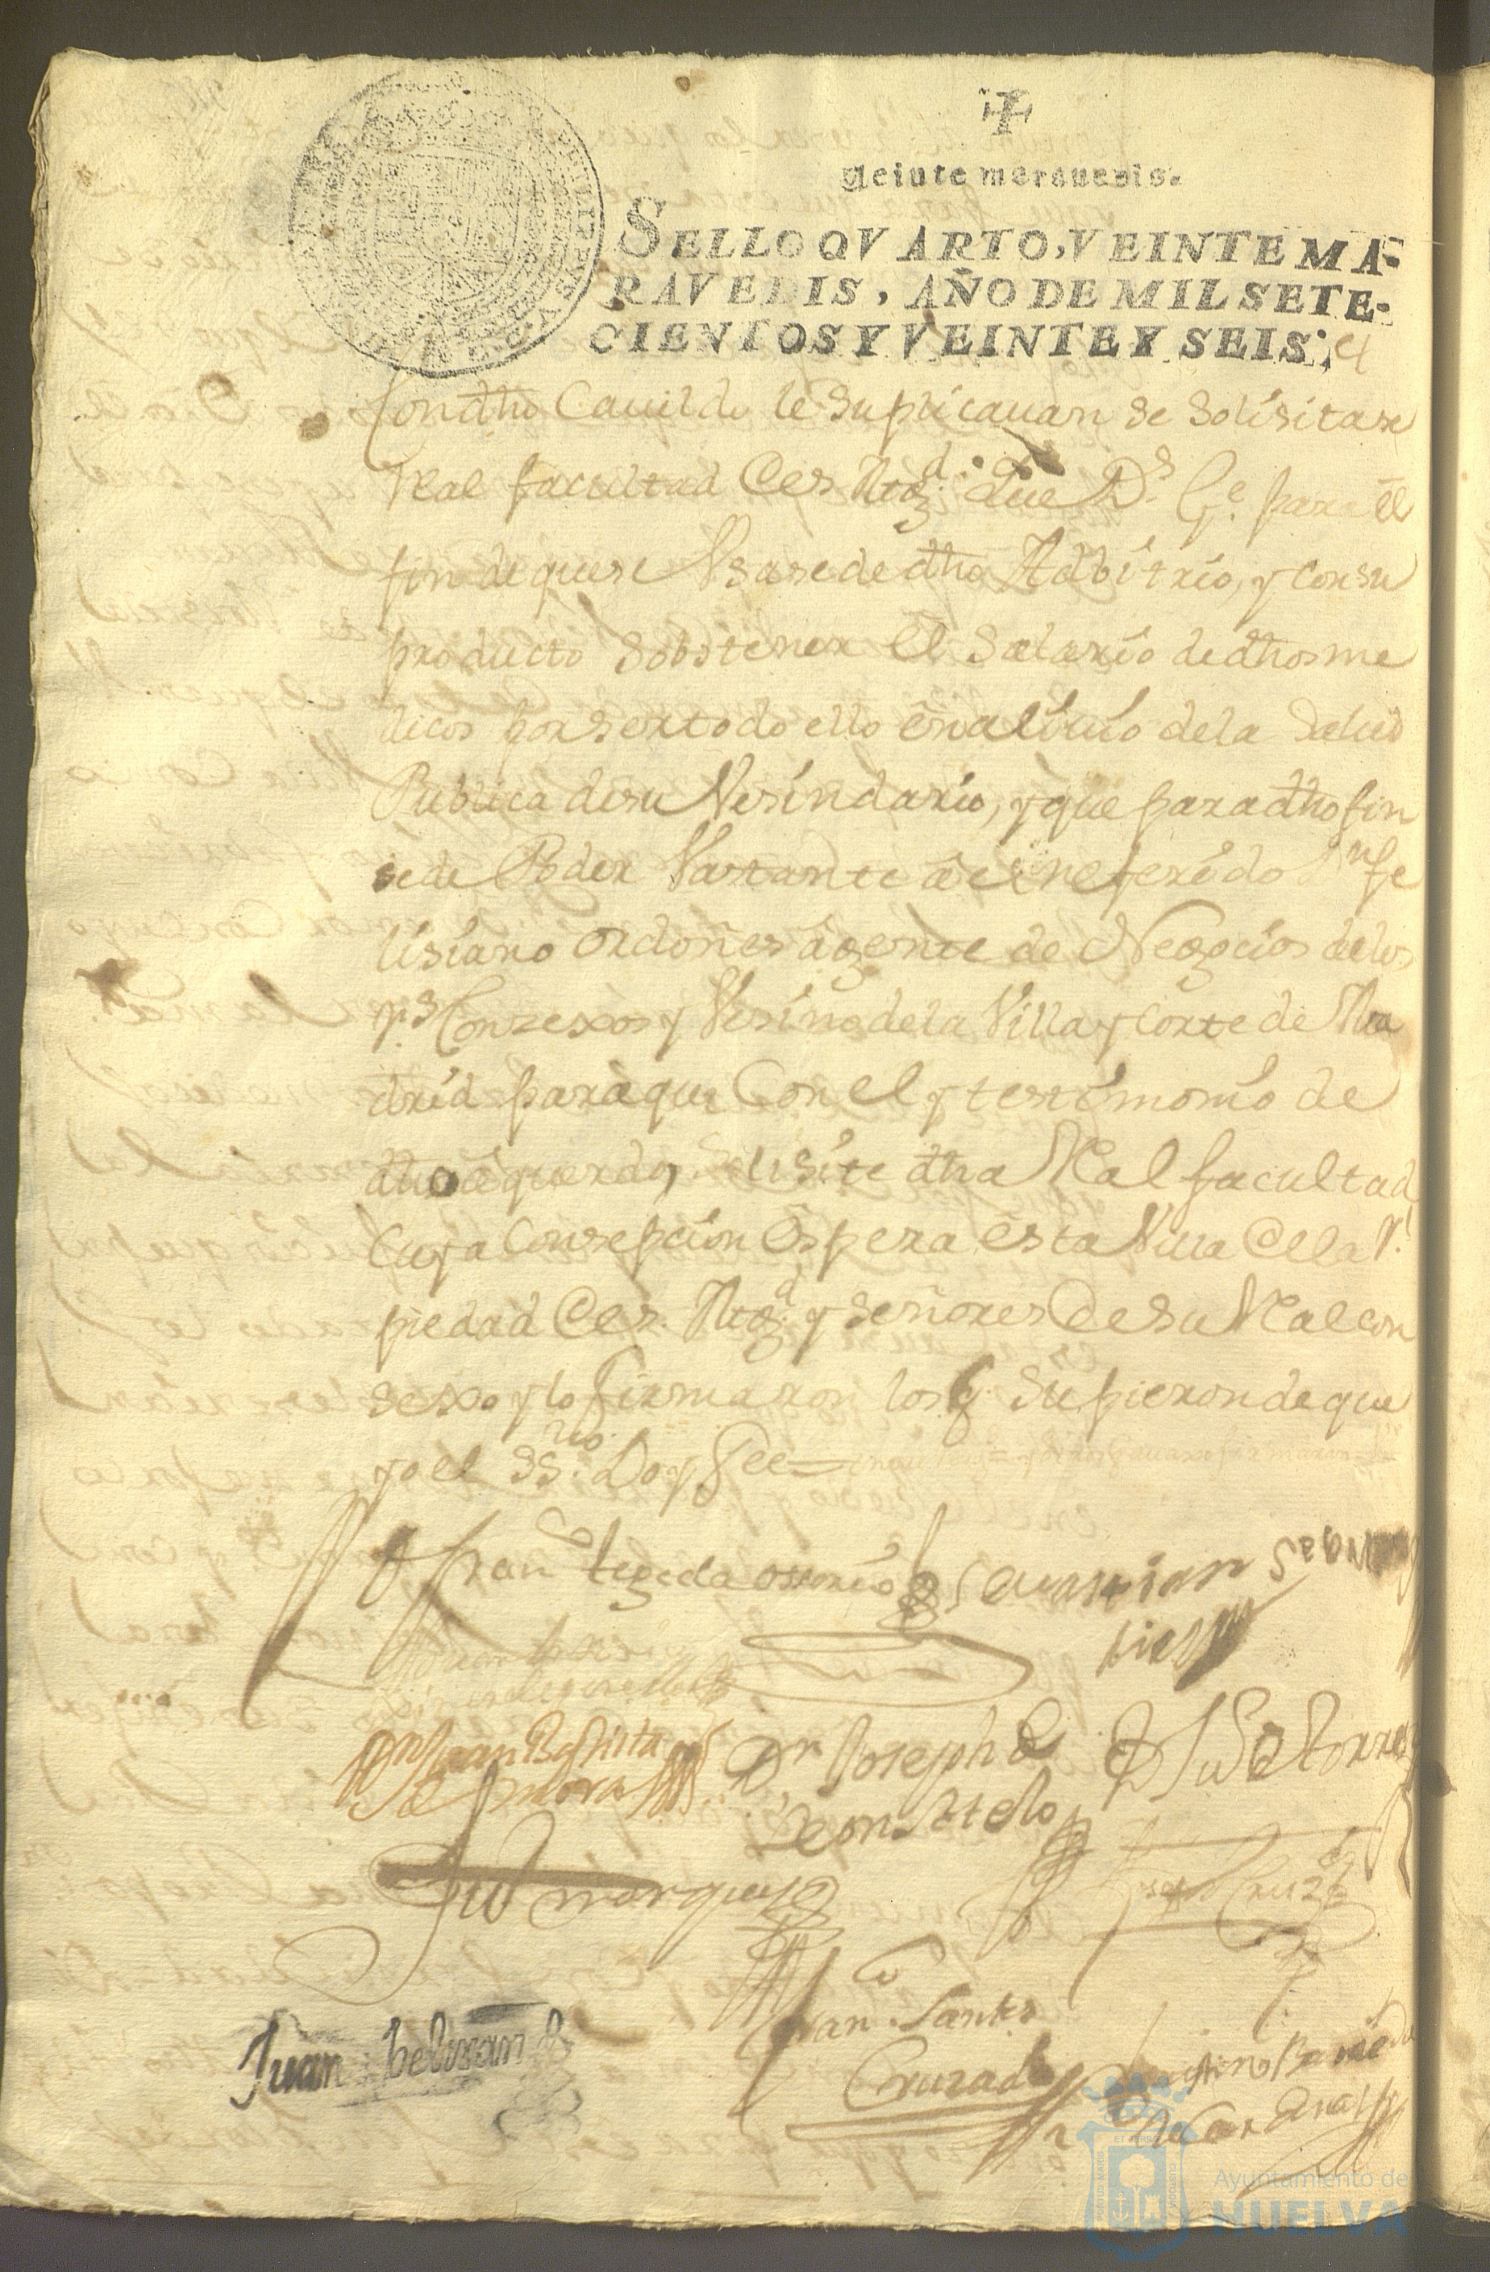 ✝
Veinte maravedis.
SELLO QVARTO, VEINTE MA-
RAVEDIS, AÑO DE MIL SETE-
CIENTOS Y VEINTE Y SEIS.
Con dho Cauildo le Suplicauan se Solisitase
Real facultad de S. Mag.d que D.s G.e para el
fin de que se Vsase de dho Adbitrio, y con su
producto Sobstener el Salario de dhos me
dicos por ser todo ello en aliuio de la Salud
Publica de su Vesindario, y que para dho fin
se de Poder Vastante a el referido D.n fe
lisiano Ordoñes agente de Negocios de los
R.s Consexos y Vesino de la Villa y Corte de Ma
drid para que Con el y testimonio de
dho aquerdo, Solisite dha Real facultad
Cuya Consepcion Espera esta Villa de la R.l
piedad de S. Mag.d y Señores de Su Real con
sexo y lo firmaron los q Supieron de que
yo el SS.rio Doy fee =
fran.co tegeda osorio
Seuastian
Dn Juan Baptista
de mora
Dn Joseph de
Leon Stelo
Ju de torres
Ju marques
Cruz
Juan beltran
fran.co Santos
Cruzado
Ayuntamiento de
HUELVA